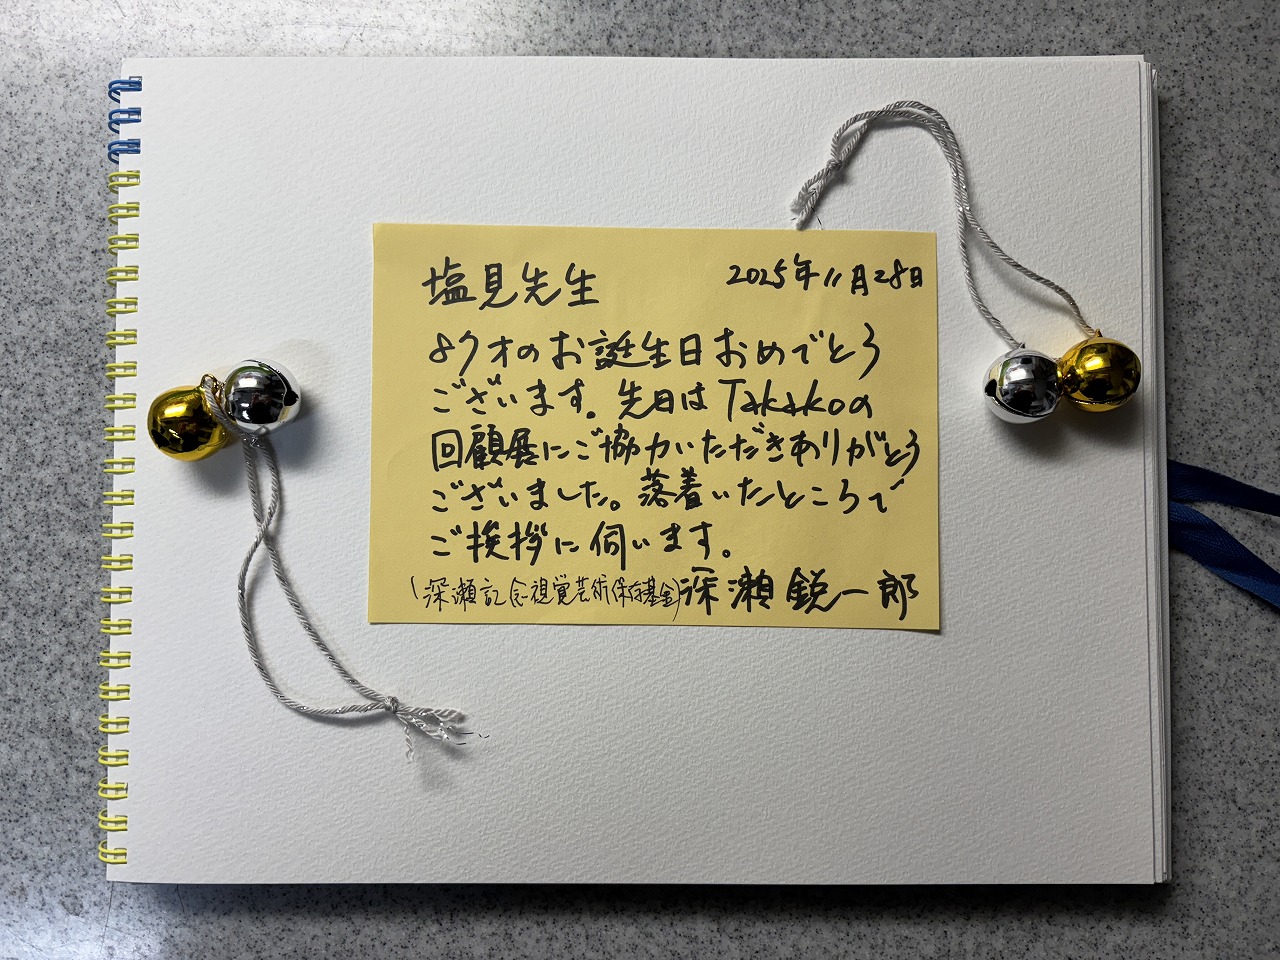 塩見先生
2025年11月28日
87才のお誕生日おめでとう
ございます。先日はTakakoの
回顧展にご協力いただきありがとう
ございました。落着いたところで
ご挨拶に伺います。
(深瀬記念視覚芸術保存基金)深瀬鋭一郎